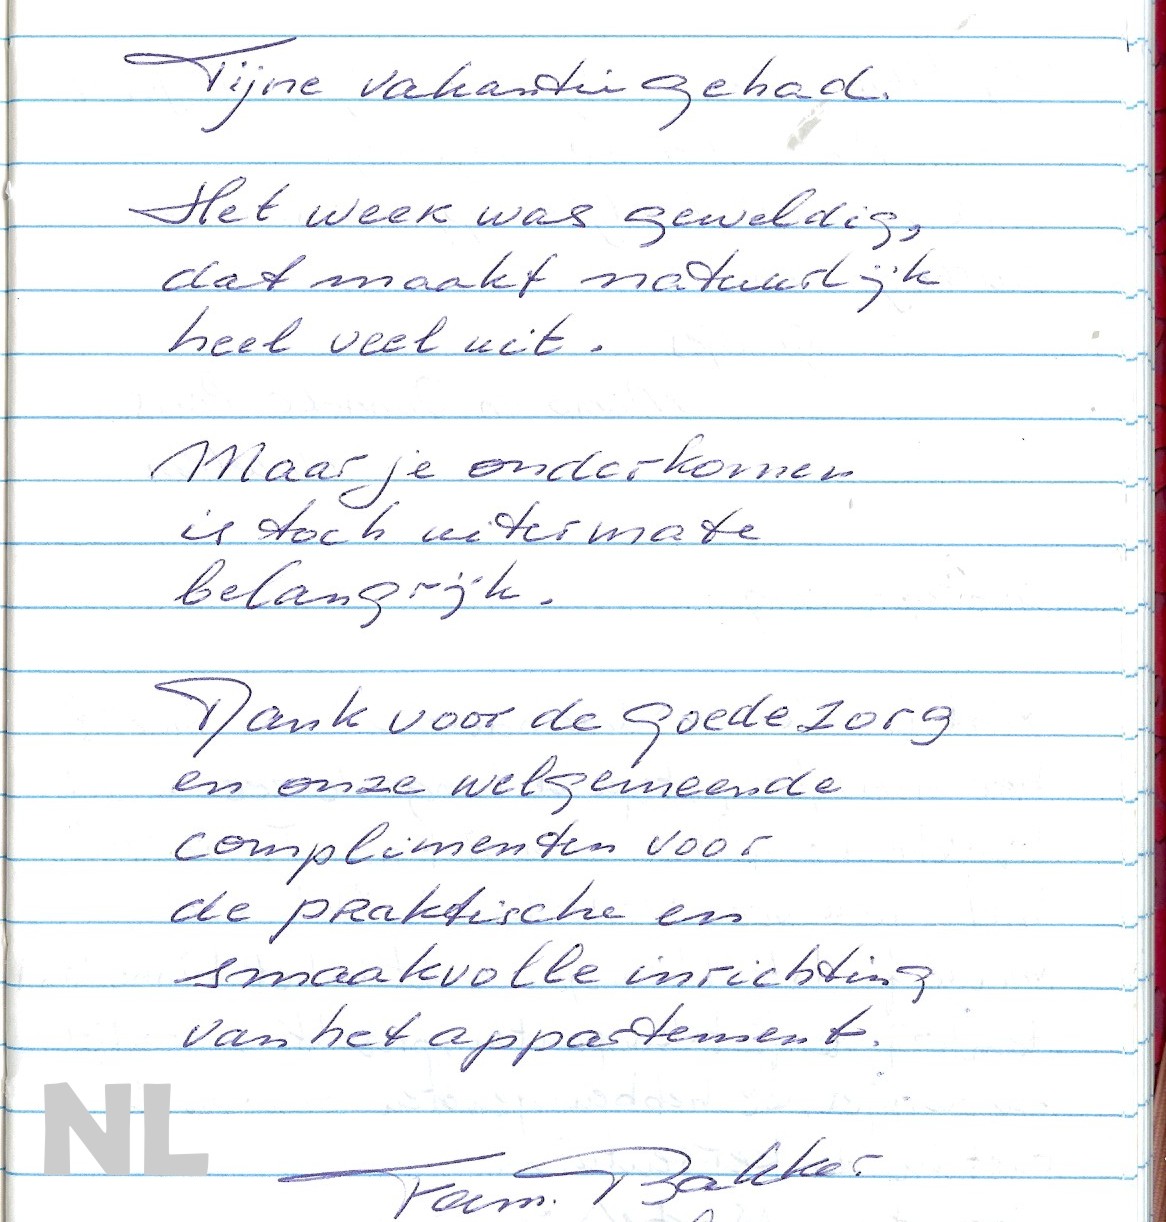 Fijne vakantie gehad.
Het week was geweldig,
dat maakt natuurlijk
heel veel uit.
Maar je onderkomen
is toch uitermate
belangrijk.
Dank voor de goede zorg
en onze welgemeende
complimenten voor
de praktische en
smaakvolle inrichting
van het appartement.
NL
Fam. Bakker